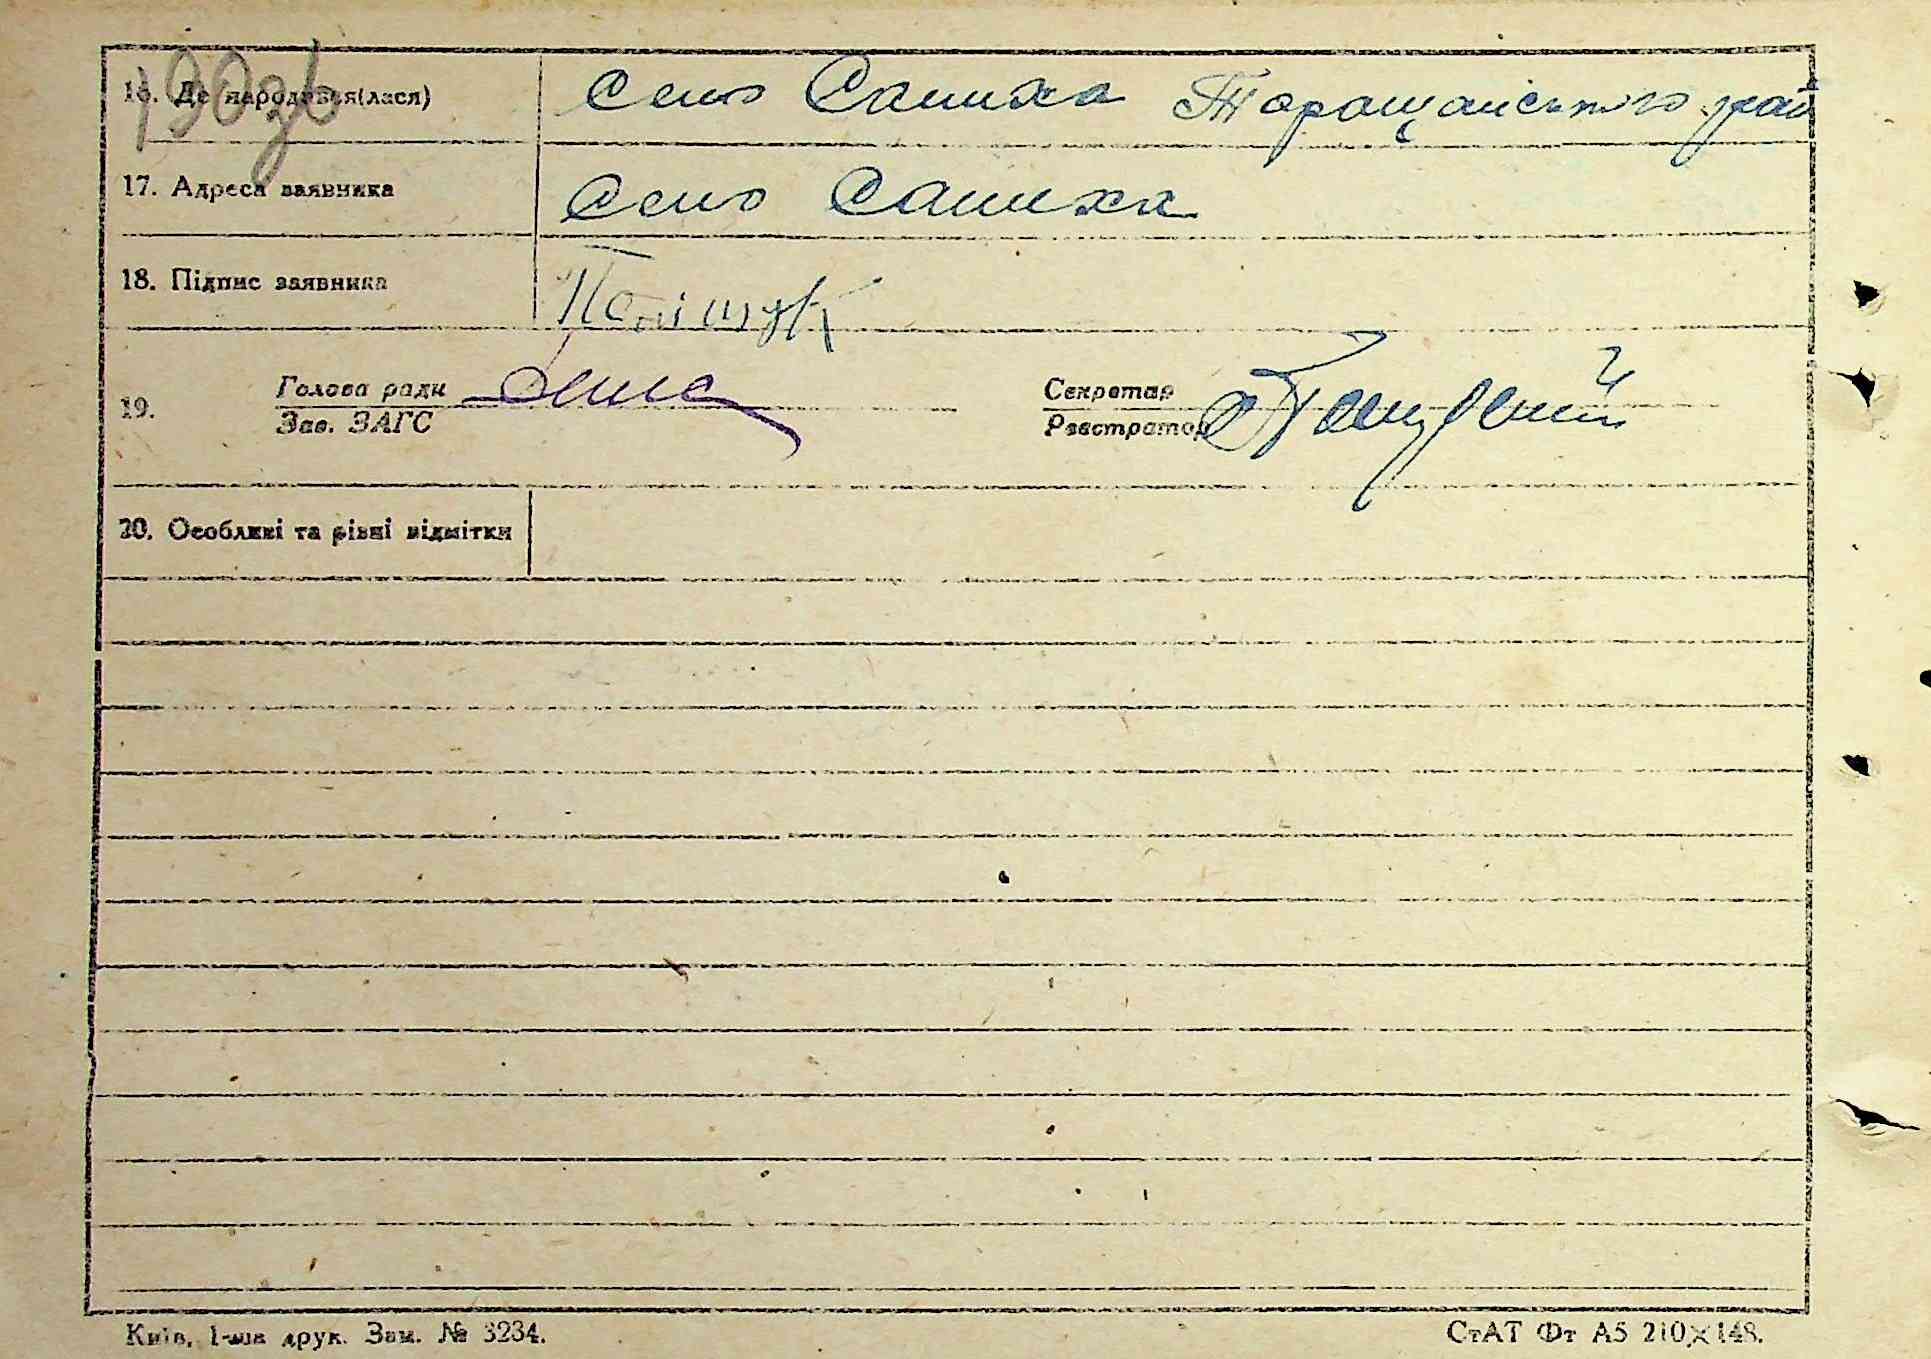 16. Де народився(лася) Село Салиха Таращанського рай
17. Адреса заявника Село Салиха
18. Підпис заявника Поліщук
19. Голова ради Секретар
Зав. ЗАГС Реєстратор
20. Особливі та різні відмітки
Київ, 1-ша друк. Зам. № 3234. СтАТ Фт А5 210×148.